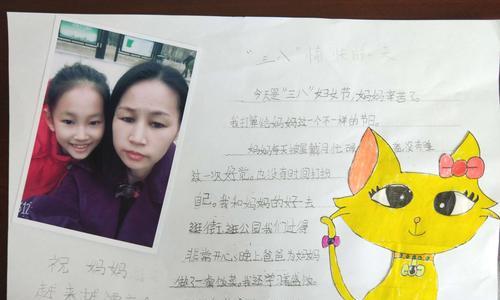 "三八"愉快的一天
今天是"三八"妇女节,妈妈辛苦了。
我打算给妈妈过一个不一样的节日。
妈妈每天披星戴月忙
没有睡
过一次好觉。也没有时间打扮
自己。我和妈妈的好一去
逛街,逛公园我们过得
非常开心,晚上爸爸为妈妈
做了一桌饭菜。我还学
祝 妈妈
越来越漂亮